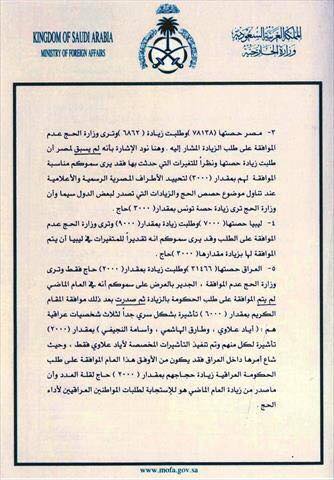 KINGDOM OF SAUDI ARABIA
MINISTRY OF FOREIGN AFFAIRS
المملكة العربية السعودية
وزارة الخارجية
٣- مصر حصتها (٧٨١٣٨) وطلبت زيادة (٦٨٦٢) وترى وزارة الحج عدم
الموافقة على طلب الزيادة المشار إليه . وهنا نود الإشارة بأنه لم يسبق لمصر أن
طلبت زيادة حصتها ونظراً للمتغيرات التي حدثت بها فقد يرى سموكم مناسبة
الموافقة لهم بمقدار (٣٠٠٠) لتحييد الأطراف المصرية الرسمية والأعلامية
عند تناول موضوع حصص الحج والزيادات التي تصدر لبعض الدول سيما وأن
وزارة الحج ترى زيادة حصة تونس بمقدار (٣٠٠٠) حاج .
٤- ليبيا حصتها (٧٠٠٠) وطلبت زيادة بمقدار (٩٠٠٠) وترى وزارة الحج عدم
الموافقة على الطلب وقد يرى سموكم انه تقديراً للمتغيرات في ليبيا أن يتم
الموافقة لها بزيادة مقدارها (٣٠٠٠) حاج .
٥- العراق حصتها (٣١٤٦٦) وطلبت زيادة بمقدار (٢٠٠٠) حاج فقط وترى
وزارة الحج عدم الموافقة ، الجدير بالعرض على سموكم أنه في العام الماضي
لم يتم الموافقة على طلب الحكومة بالزيادة ثم صدرت بعد ذلك موافقة المقام
الكريم بمقدار (٦٠٠٠) تأشيرة بشكل سري جداً لثلاث شخصيات عراقية
هم : أياد علاوي ، وطارق الهاشمي ، وأسامة النجيفي ) بمقدار (٢٠٠٠)
تأشيرة لكل منهم وتم تنفيذ التأشيرات المخصصة لأياد علاوي فقط ، وحيث
شاع أمرها داخل العراق فقد يكون من الأوفق هذا العام الموافقة على طلب
الحكومة العراقية زيادة حجاجهم بمقدار (٢٠٠٠) حاج لقلة العدد وأن
ماصدر من زيادة العام الماضي هو للإستجابة لطلبات المواطنين العراقيين لأداء
الحج .
www.mofa.gov.sa